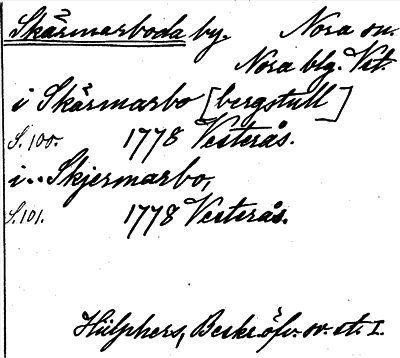 Skärmarboda by. Nora sn.
Nora blg. Vst.
i Skärmarbo [bergstull]
S. 100. 1778 Vesterås.
i.. Skjermarbo,
S. 101. 1778 Vesterås.
Hülphers, Beskr. öfv. sv. st. I.